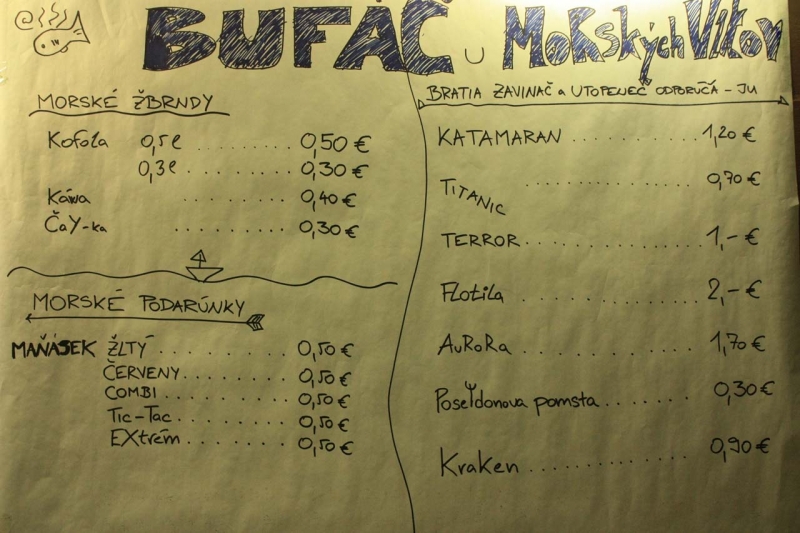 BUFÁČ U MORSkých Vlkov
MORSKÉ ŽBRNDY
Kofola 0,5l .......... 0,50 €
0,3l .......... 0,30 €
Káwa .......... 0,40 €
ČaY-ka .......... 0,30 €
MORSKÉ PODARÚNKY
MAŇÁSEK ŽLTÝ .......... 0,50 €
ČERVENY .......... 0,50 €
COMBI .......... 0,50 €
Tic-Tac .......... 0,50 €
EXtrém .......... 0,50 €
BRATIA ZAVINAČ a UTOPENEC ODPORÚČA-JU
KATAMARAN .......... 1,20 €
TITANIC .......... 0,70 €
TERROR .......... 1,- €
Flotila .......... 2,- €
AuRoRa .......... 1,70 €
Poseidonova pomsta .......... 0,30 €
Kraken .......... 0,90 €